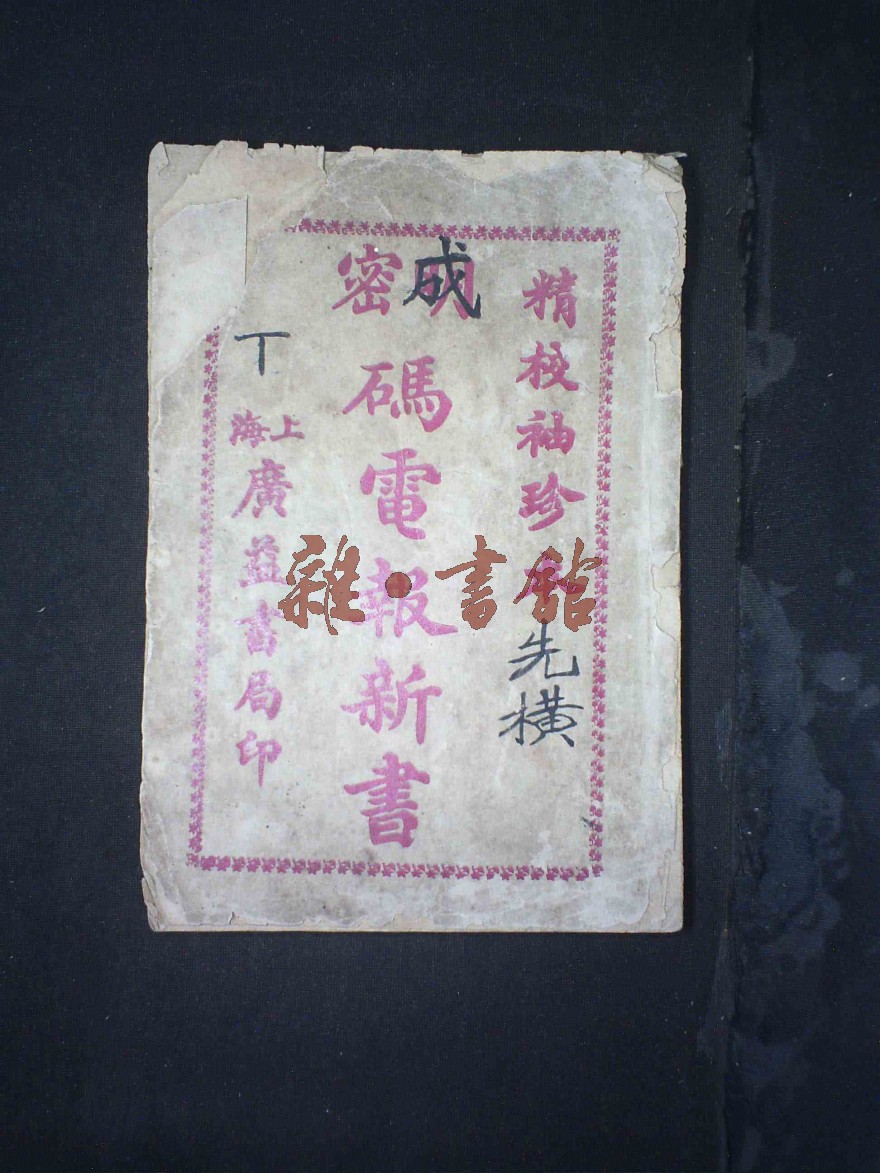 精校袖珍本
先橫
成
明密
碼電報新書
丁
上海
廣益書局印
雜·書館